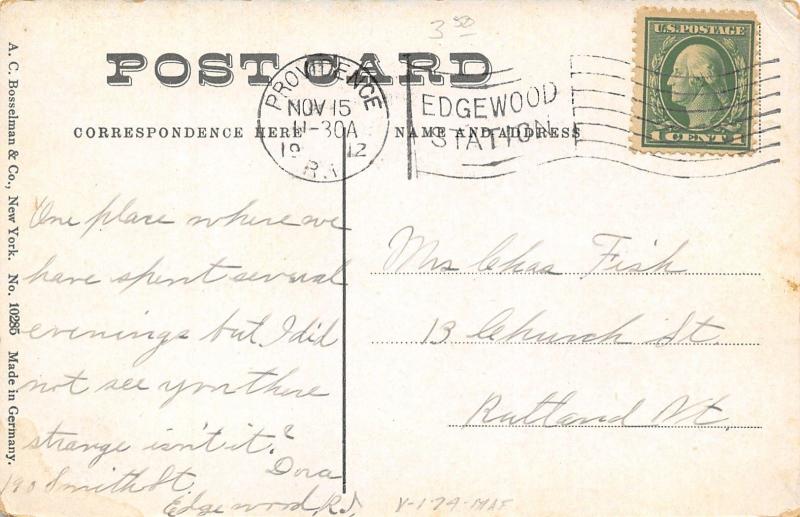 3 50
POST CARD
PROVIDENCE
NOV 15
11-30A
19 12
R.I.
EDGEWOOD
STATION
U.S. POSTAGE
1 CENT 1
CORRESPONDENCE HERE
NAME AND ADDRESS
A. C. Bosselman & Co., New York. No. 10285 Made in Germany.
One place where we
have spent several
evenings but I did
not see you there
strange isn't it?
Dora
190 Smith St.
Edgewood, R.I.
Mrs Chas Fish
13 Church St.
Rutland Vt.
V-179-MAS